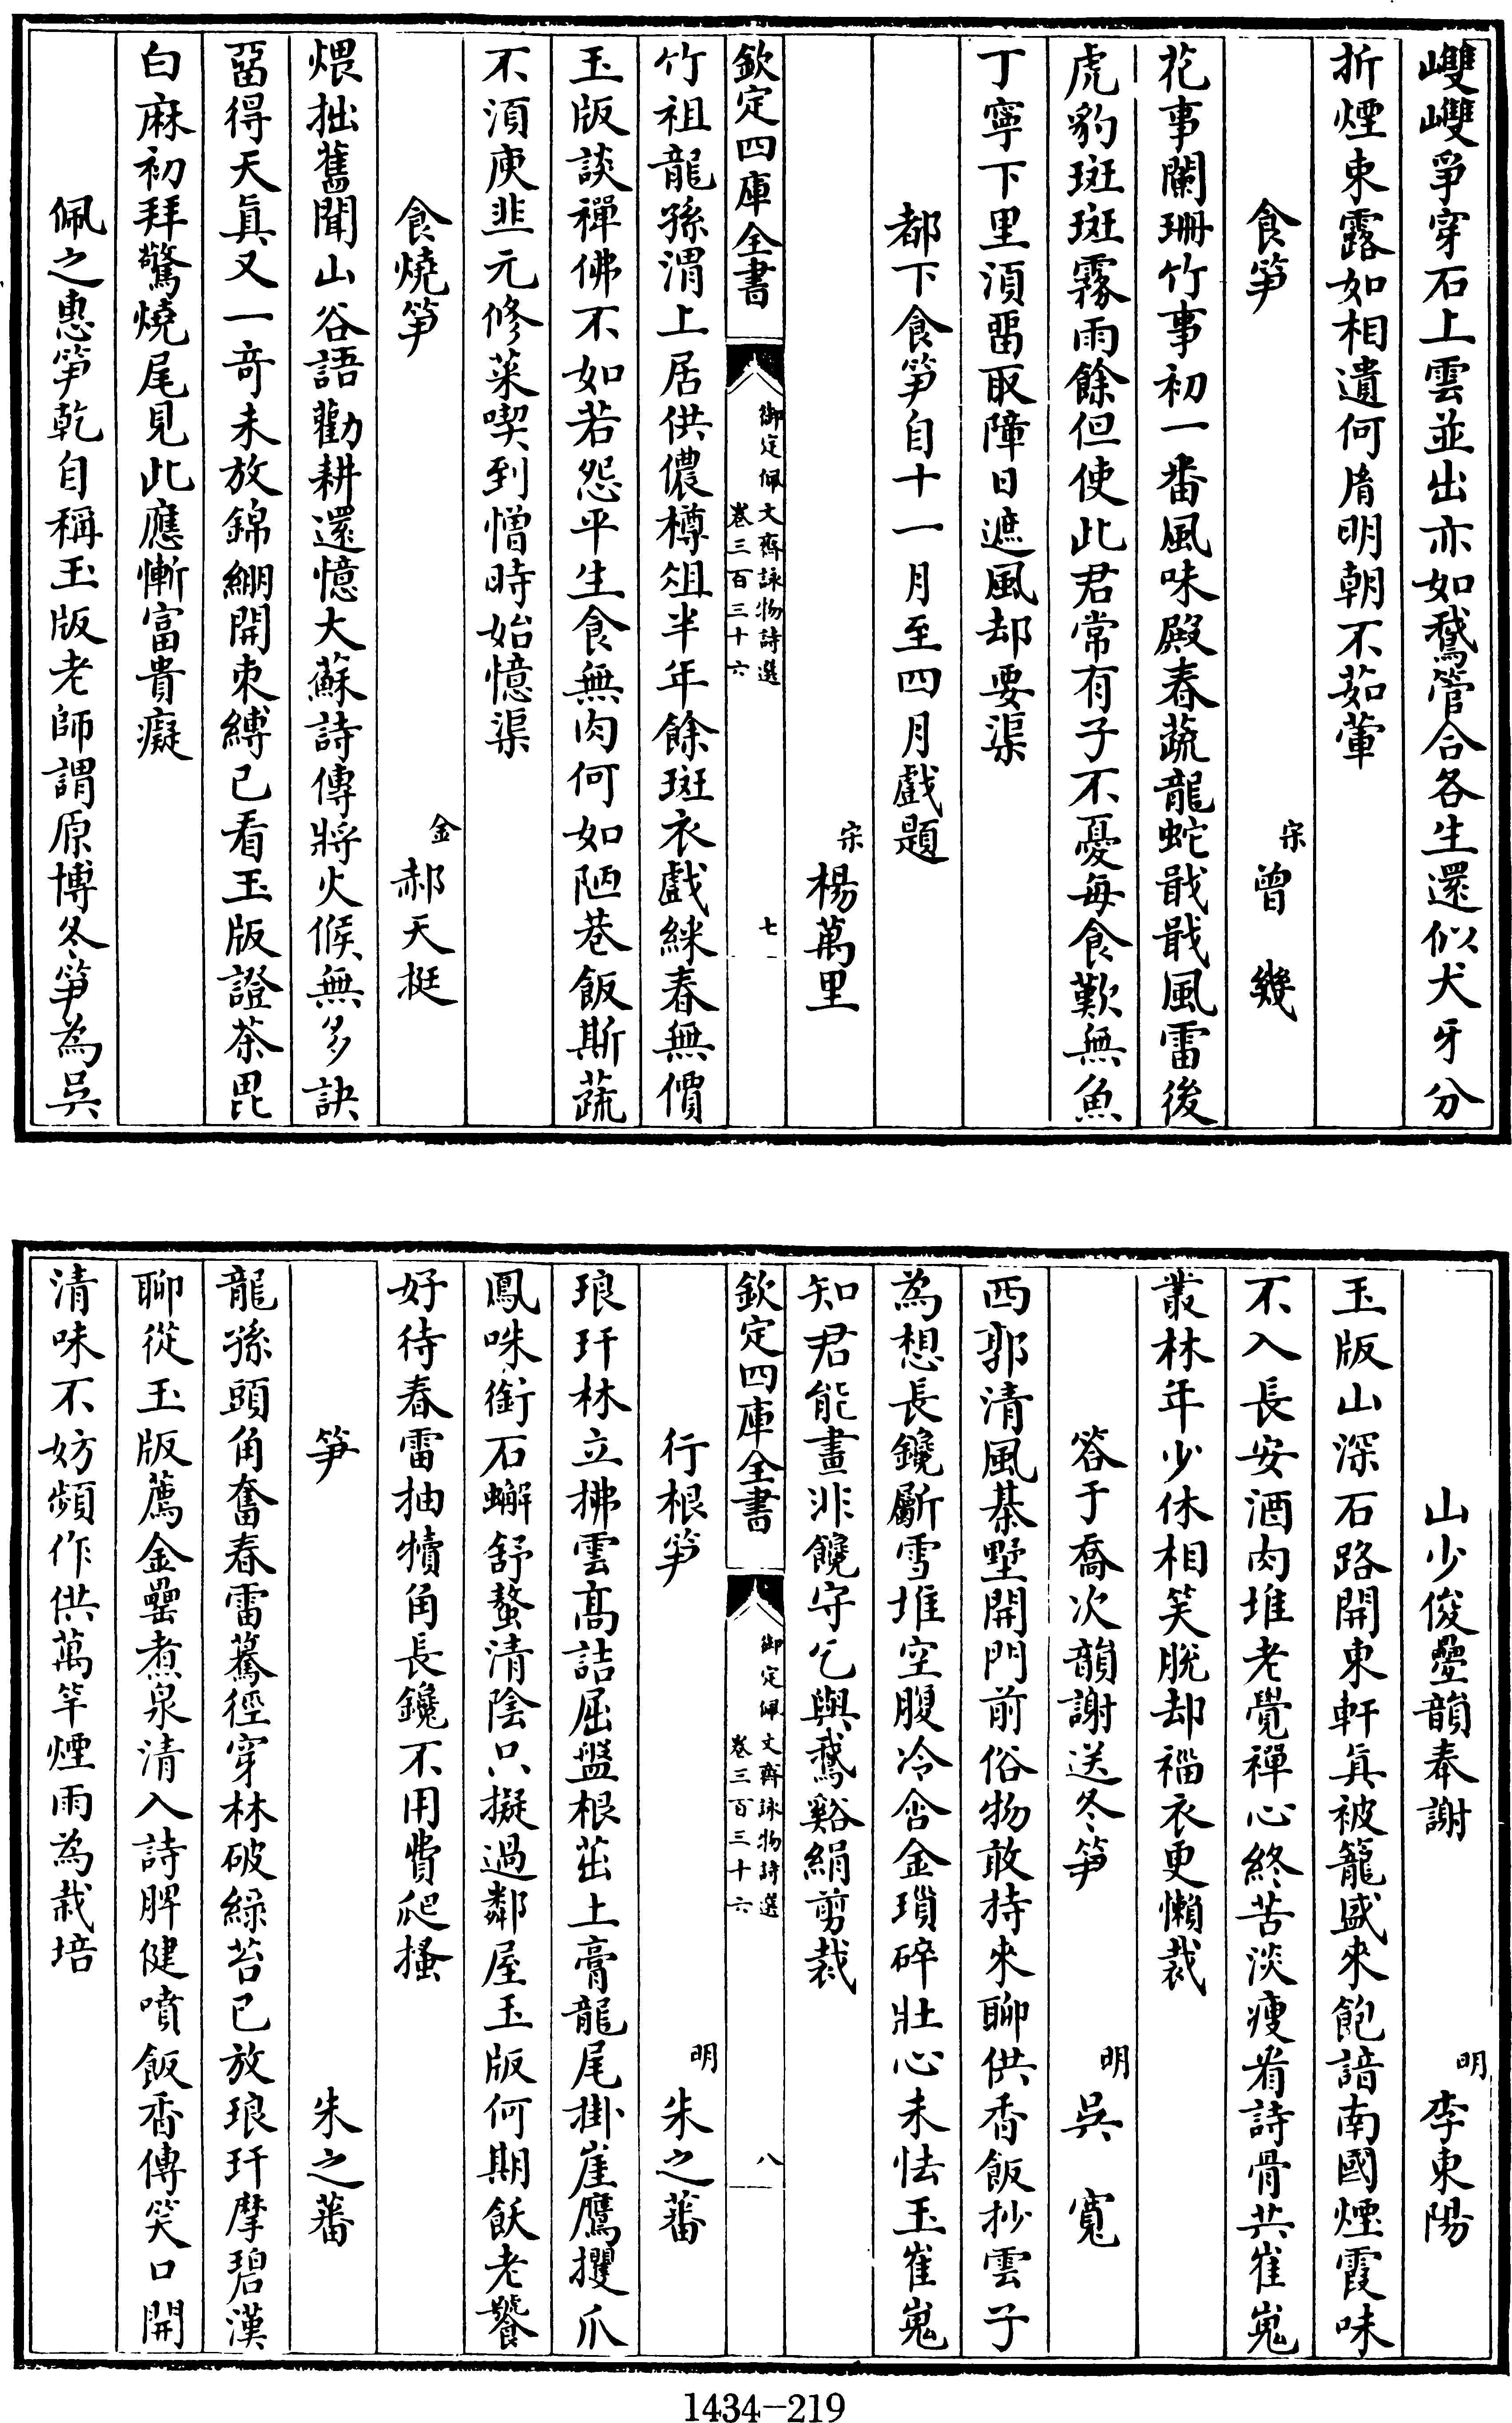 㠉㠉爭穿石上雲並出亦如鵞管合各生還似犬牙分
折煙束露如相遺何消明朝不茹葷
食筍 宋曾幾
花事闌珊竹事初一番風味殿春蔬龍蛇戢戢風雷後
虎豹斑斑霧雨餘但使此君常有子不憂每食歎無魚
丁寧下里須畱取障日遮風却要渠
都下食筍自十一月至四月戲題
宋楊萬里
欽定四庫全書 御定佩文齋詠物詩選 卷三百三十六 七
竹祖龍孫渭上居供儂樽俎半年餘斑衣戲綵春無價
玉版談禪佛不如若怨平生食無肉何如陋巷飯斯蔬
不須庾韭元修菜喫到憎時始憶渠
食燒筍 金郝天挺
煨拙舊聞山谷語勸耕還憶大蘇詩傳將火候無多訣
畱得天真又一奇未放錦繃開束縛已看玉版證茶毘
白麻初拜驚燒尾見此應慚富貴癡
佩之惠筍乾自稱玉版老師謂原博冬筍為吳
山少俊疊韻奉謝 明李東陽
玉版山深石路開東軒真被籠盛來飽諳南國煙霞味
不入長安酒肉堆老覺禪心終苦淡瘦看詩骨共崔嵬
叢林年少休相笑脫却緇衣更懶裁
答于喬次韻謝送冬筍 明吳寬
西郭清風棊墅開門前俗物敢持來聊供香飯抄雲子
為想長鑱斸雪堆空腹冷含金瑣碎壯心未怯玉崔嵬
知君能畫非饞守乞與鵞谿絹剪裁
欽定四庫全書 御定佩文齋詠物詩選 卷三百三十六 八
行根筍 明朱之蕃
琅玕林立拂雲高詰屈盤根茁土膏龍尾掛崖鷹攫爪
鳳咮銜石蠏舒螯清陰只擬過鄰屋玉版何期飫老饕
好待春雷抽犢角長鑱不用費爬搔
筍 朱之蕃
龍孫頭角奮春雷驀徑穿林破綠苔已放琅玕摩碧漢
聊從玉版薦金罍煮泉清入詩脾健噴飯香傳笑口開
清味不妨頻作供萬竿煙雨為栽培
1434-219